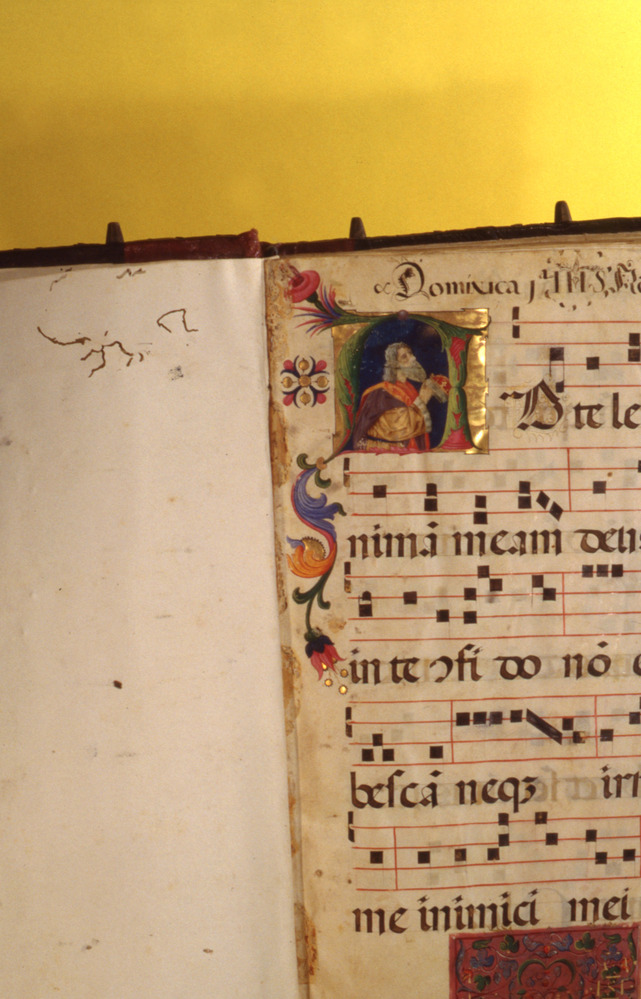 Dominica j
D te le
nimā meam deus
in te ɔfi do nō e
bescā neqꝫ irr
me inimici mei